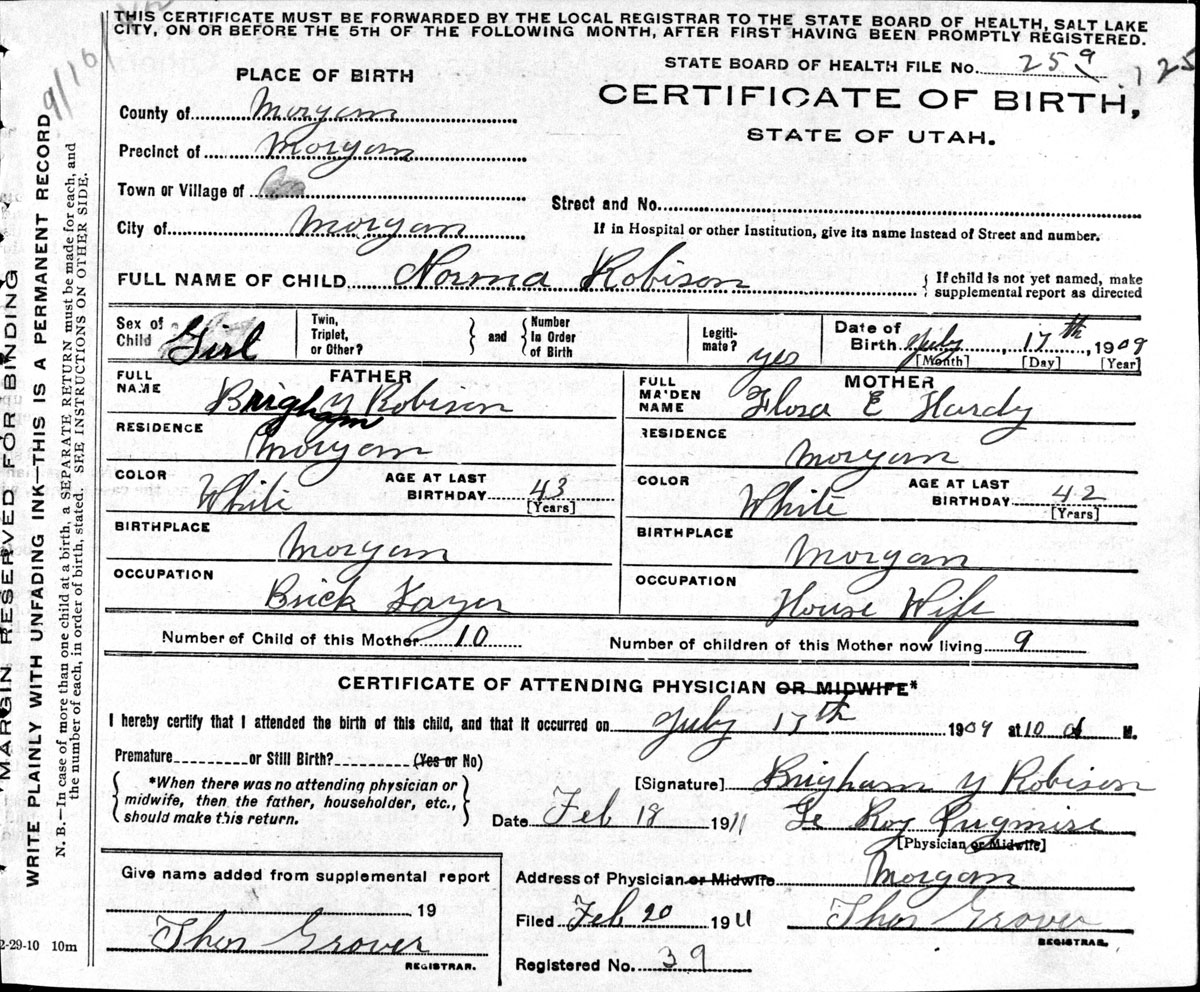 THIS CERTIFICATE MUST BE FORWARDED BY THE LOCAL REGISTRAR TO THE STATE BOARD OF HEALTH, SALT LAKE
CITY, ON OR BEFORE THE 5TH OF THE FOLLOWING MONTH, AFTER FIRST HAVING BEEN PROMPTLY REGISTERED.
STATE BOARD OF HEALTH FILE No. 259 125
PLACE OF BIRTH
CERTIFICATE OF BIRTH,
STATE OF UTAH.
County of Morgan
Precinct of Morgan
Town or Village of
Street and No.
City of Morgan
If in Hospital or other Institution, give its name instead of Street and number.
FULL NAME OF CHILD Norma Robison
{ If child is not yet named, make
supplemental report as directed
Sex of
Child Girl
Twin,
Triplet,
or Other?
} and {
Number
in Order
of Birth
Legiti-
mate? yes
Date of
Birth July, 17th, 1909
[Month] [Day] [Year]
FATHER
FULL
NAME Brigham Y Robison
RESIDENCE Morgan
COLOR White AGE AT LAST
BIRTHDAY 43
[Years]
BIRTHPLACE Morgan
OCCUPATION Brick Layer
MOTHER
FULL
MAIDEN
NAME Flosa E Hardy
RESIDENCE Morgan
COLOR White AGE AT LAST
BIRTHDAY 42
[Years]
BIRTHPLACE Morgan
OCCUPATION House Wife
Number of Child of this Mother 10 Number of children of this Mother now living 9
CERTIFICATE OF ATTENDING PHYSICIAN OR MIDWIFE*
I hereby certify that I attended the birth of this child, and that it occurred on July 17th 1909 at 10 a M.
Premature or Still Birth? (Yes or No)
{ *When there was no attending physician or
midwife, then the father, householder, etc.,
should make this return. }
[Signature] Brigham Y Robison
Date Feb 18 1911 Le Roy Pugmire
[Physician or Midwife]
Address of Physician or Midwife Morgan
Filed Feb 20 1911 Thos Grover
REGISTRAR.
Registered No. 39
Give name added from supplemental report
19
Thos Grover
REGISTRAR.
2-29-10 10m
MARGIN RESERVED FOR BINDING
WRITE PLAINLY WITH UNFADING INK—THIS IS A PERMANENT RECORD
N. B.—In case of more than one child at a birth, a SEPARATE RETURN must be made for each, and
the number of each, in order of birth, stated. SEE INSTRUCTIONS ON OTHER SIDE.